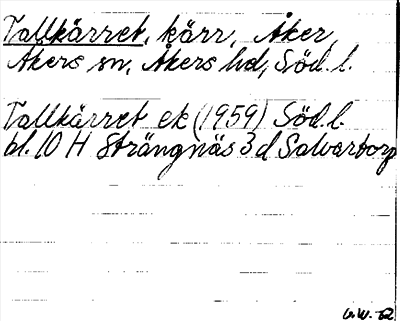 Tallkärret, kärr, Åker,
Åkers sn, Åkers hd, Söd. l.
Tallkärret ek (1959) Söd. l.
bl. 10 H Strängnäs 3 d Salvartorp
G.W. 62